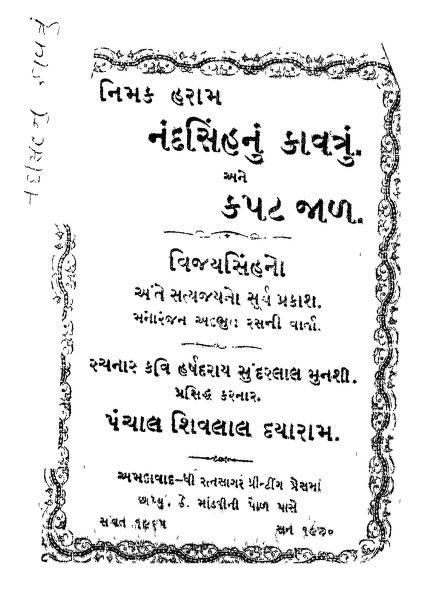 નંદસિંહનું કાવત્રું
નિમક હરામ
નંદસિંહનું કાવત્રું.
અને
કપટ જાળ.
વિજયસિંહનો
અંતે સત્યજયનો સૂર્ય પ્રકાશ.
મનોરંજન અદભુત રસની વાર્તા.
રચનાર કવિ હર્ષદરાય સુંદરલાલ મુનશી.
પ્રસિદ્ધ કરનાર.
પંચાલ શિવલાલ દયારામ.
અમદાવાદ–ધી રત્નસાગર પ્રીન્ટીંગ પ્રેસમાં
છાપ્યું. ઠે. માંડવીની પોળ પાસે
સંવત ૧૯૬૫ સન ૧૯૧૦